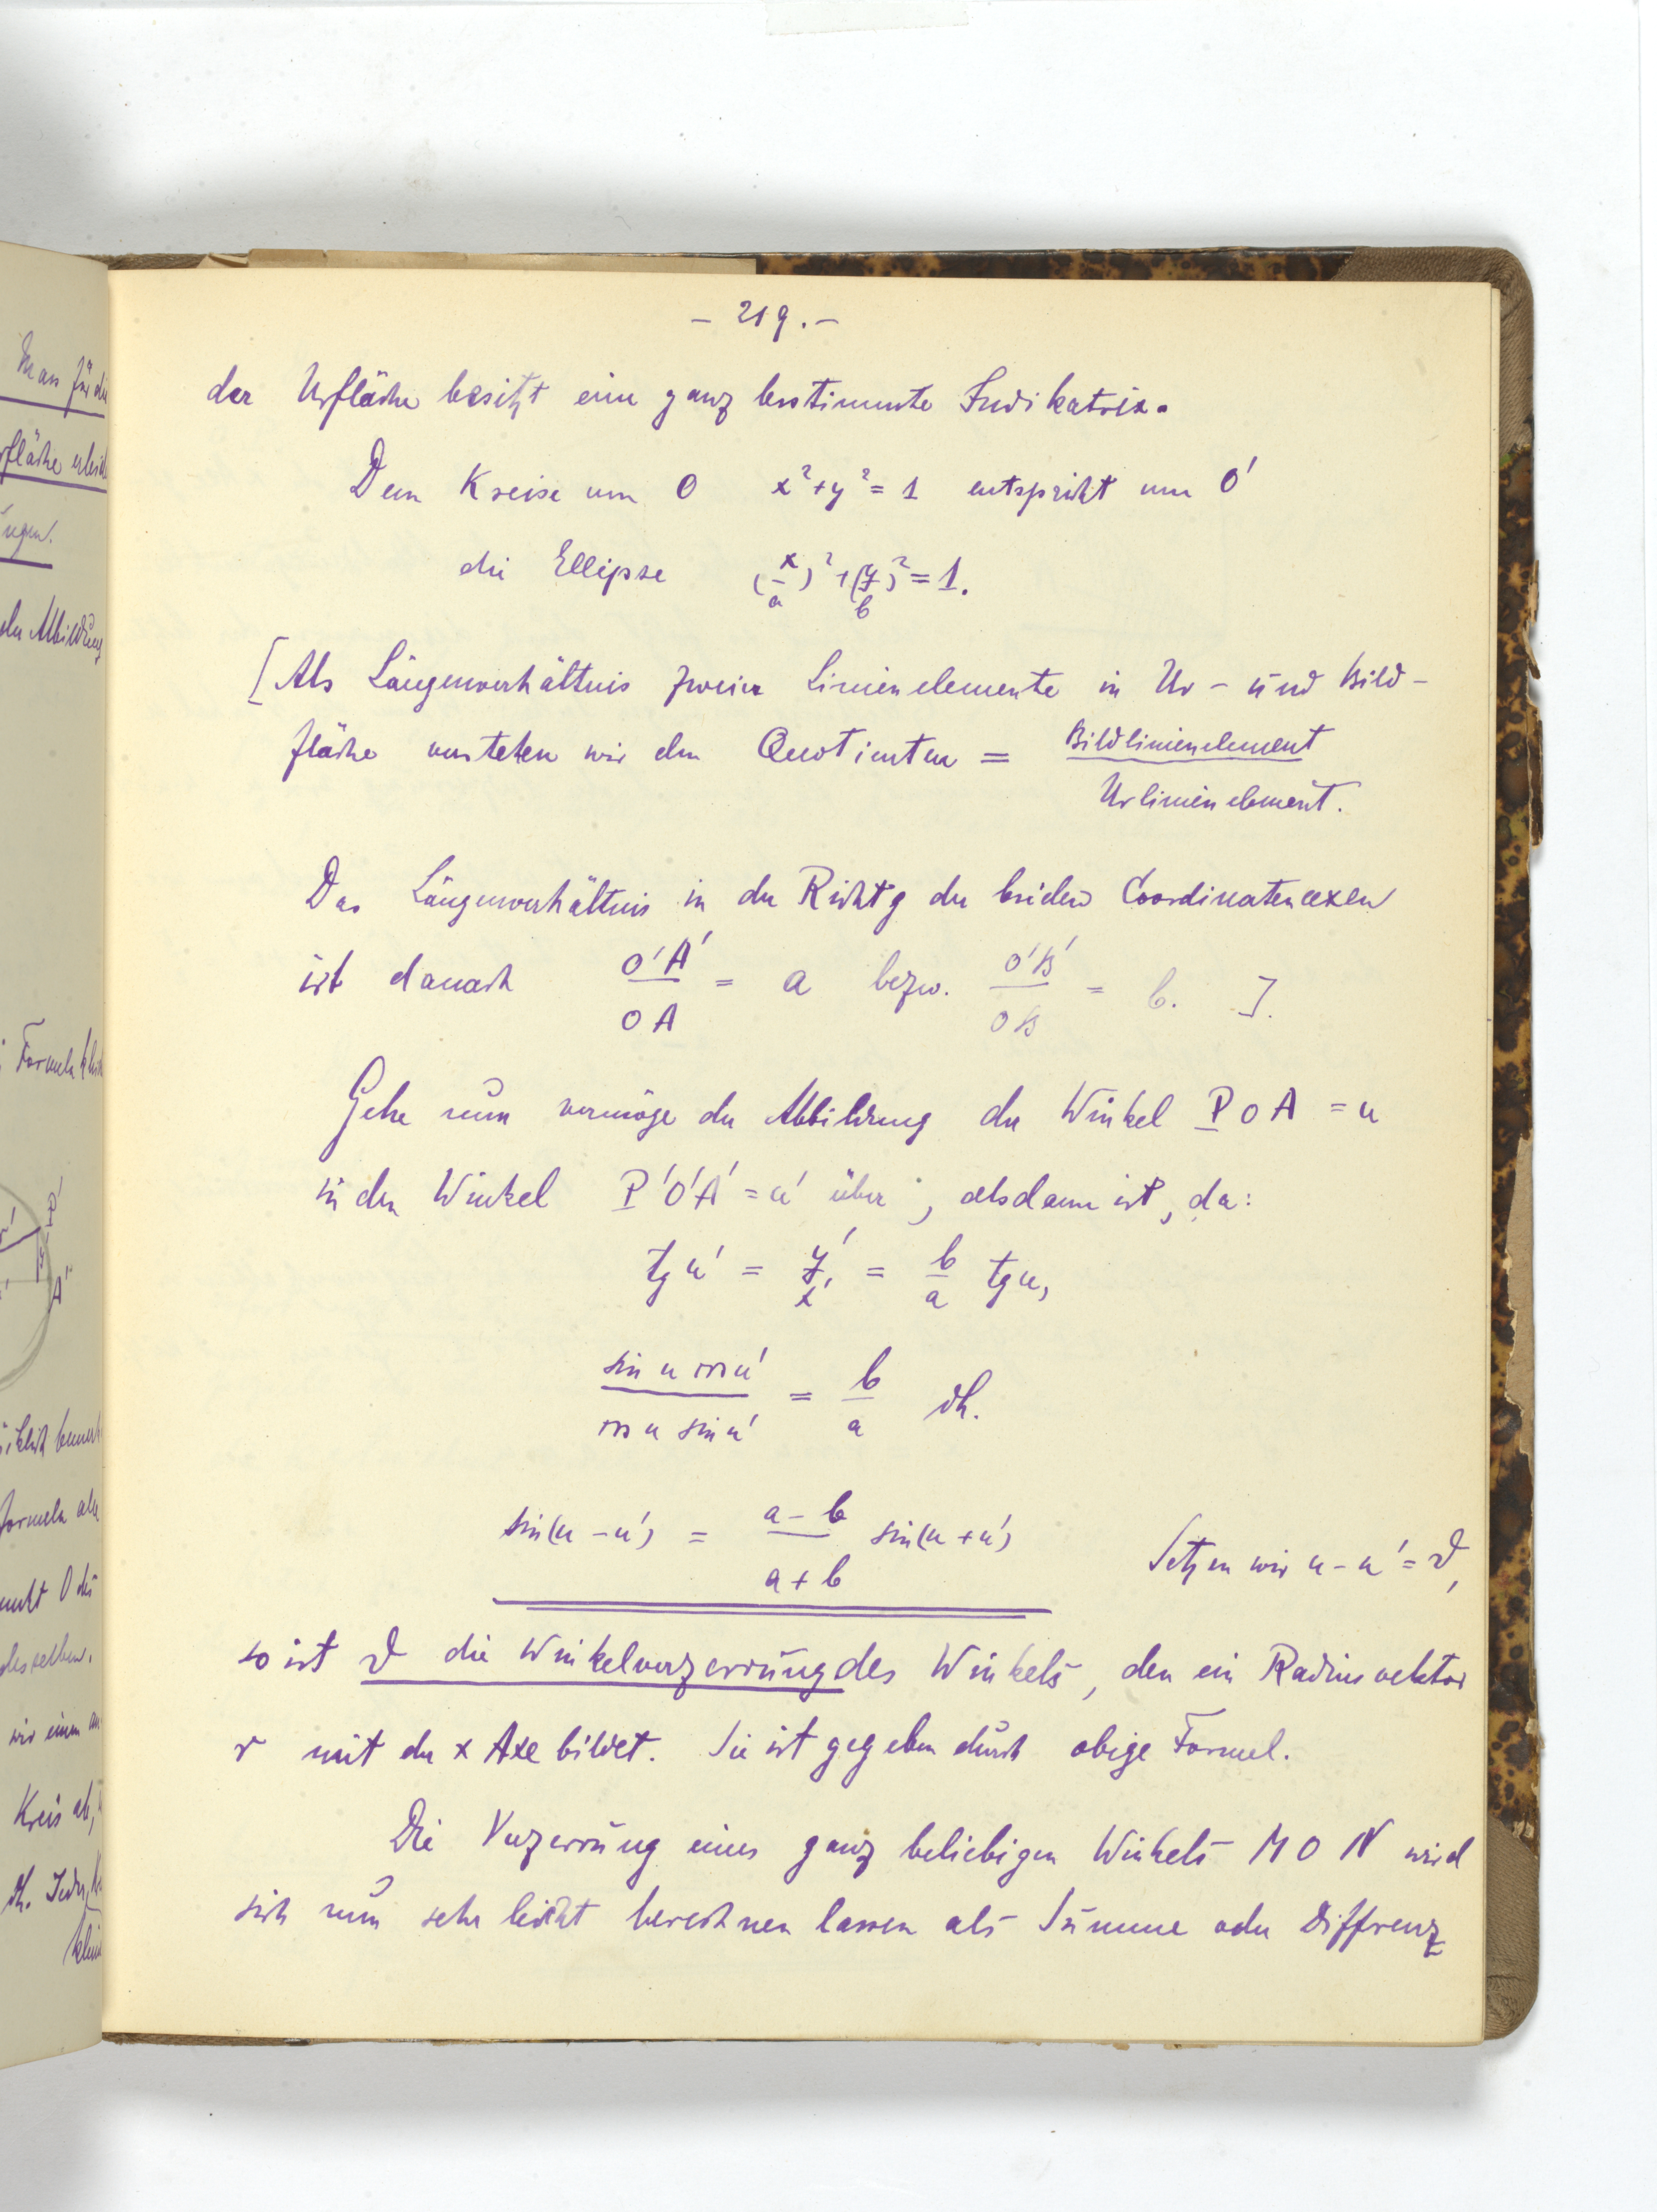 - 219. -
der Urfläche besitzt eine ganz bestimmte Indikatrix.
Dem Kreise um O x²+y²=1 entspricht um O'
die Ellipse (x/a)²+(y/b)²=1.
[Als Längenverhältnis zweier Linienelemente in Ur- und Bild-
fläche verstehen wir den Quotienten = Bildlinienelement
Urlinienelement.
Das Längenverhältnis in der Richtg der beiden Coordinatenaxen
ist danach O'A'/OA = a bezw. O'B'/OB = b. ].
Gehe nun vermöge der Abbildung der Winkel POA = u
in den Winkel P'O'A' = u' über, alsdann ist, da:
tg u' = y'/x' = b/a tg u,
sin u cos u' / cos u sin u' = b/a dh.
sin(u-u') = a-b/a+b sin(u+u') Setzen wir u-u' = ϑ,
so ist ϑ die Winkelverzerrung des Winkels, den ein Radiusvektor
r mit der x Axe bildet. Sie ist gegeben durch obige Formel.
Die Verzerrung eines ganz beliebigen Winkels MON wird
sich nun sehr leicht berechnen lassen als Summe oder Differenz
Man für die
rfläche erleid
ngen.
der Abbildung
Formeln
A'
P'
formeln
punkt O des
desselben.
wir einen
Kreis ab,
dh. Jeder